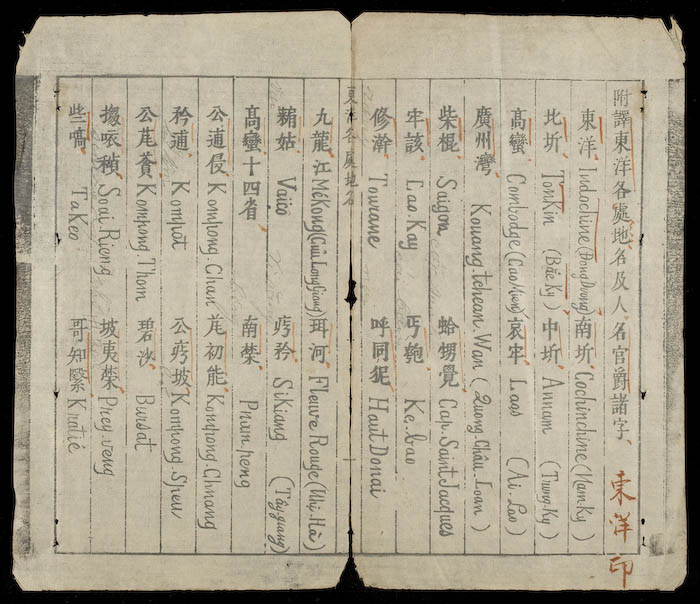 附譯東洋各處地名及人名官爵諸字、
東洋印
東洋、Indochine (Đông Dương) 南圻、Cochinchine (Nam Kỳ)
北圻、TonKin (Bắc Kỳ) 中圻、Annam (Trung Kỳ)
高蠻、Cambodge (Cao Miên) 哀牢、Laos (Ai Lao)
廣州灣、Kouang. tchéan. Wan (Quong Châu Loan)
柴棍、Saigon 蛤甥覺 Cap. Saint Jacques
牢該、Lao. Kay 丐匏、Ke. bao
修瀚、Tourane 呼同狔 Haut Donai
東洋各處地名
九龍江 Mékong (Cửu Long Giang) 珥河、Fleuve Rouge (Nhị. Hà)
姑、Vaïcô 矜 SiKiang (Tây giang)
高蠻十四省 南榮、Pnum peng
公逋侵 Kompong. Chan 芤初能、Kompong. Chnang
矜逋、Kompôt 公坡 Kompong. Speu
公芤賛、Kompong. Thom 碧沙 Bursat
拟衣稹、Soai. Rieng 坡夷榮、Prey. veng
些嗃、TaKeo 哥知 Kratié